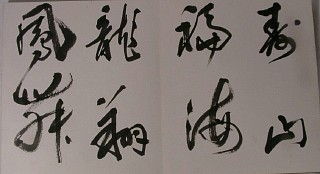 寿山
福海
龍翔
鳳舞